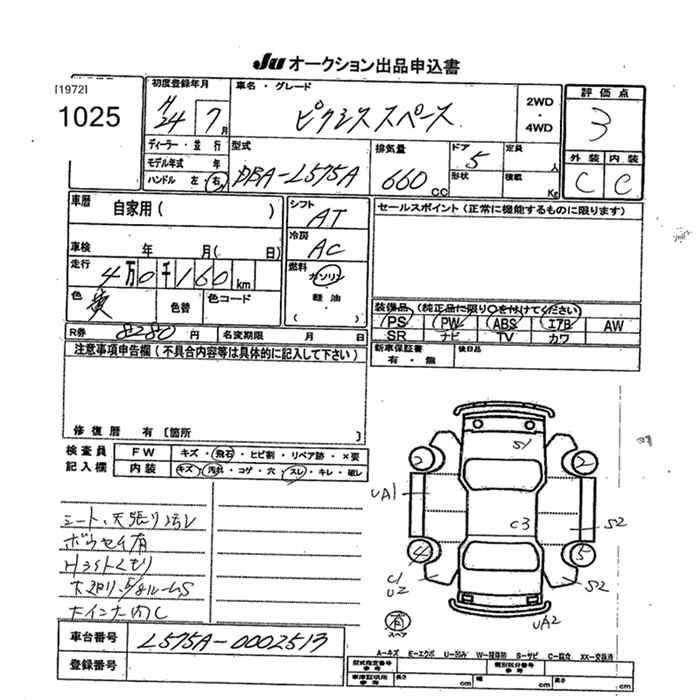 Ju オークション出品申込書
[1972]
1025
初度登録年月
H24 7月
車名・グレード
ピクシススペース
2WD
・
4WD
評価点
3
ディーラー・並行
モデル年式 年
ハンドル 左・右
型式
DBA-L575A
排気量
660 CC
ドア
5
形状
定員
人
積載
Kg
外装 内装
C C
車歴
自家用( )
シフト
AT
セールスポイント(正常に機能するものに限ります)
車検 年 月( 日)
冷房
AC
走行
4万0千160km
燃料
ガソリン
軽油
( )
色
黄
色替
色コード
装備品(純正品に限り○を付けてください)
PS PW ABS エアB AW
SR ナビ TV カワ
R券 8280円
名変期限 月 日
新車保証書
有・無
後日品
注意事項申告欄(不具合内容等は具体的に記入して下さい)
修復歴 有〔箇所 〕
検査員
記入欄
FW キズ・飛石・ヒビ割・リペア跡・×要
内装 キズ・汚れ・コゲ・穴・スレ・キレ・破レ
シート、天張り汚レ
ボウセイ有
Hライトくもり
S1
2
2
UA1
C3
S2
4
5
C1
U2
S2
UA2
有
スペア
車台番号 L575A-0002513
登録番号
A-キズ E-エクボ U-凹み W-補修跡 S-サビ C-腐食 XX-交換済
型式指定番号
参考
類別区分番号
参考
車庫証明用
参考
長さ cm
幅 cm
高さ cm